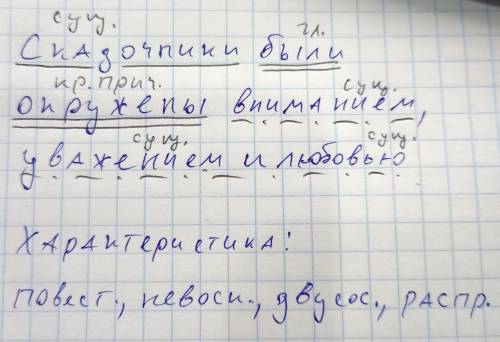 сущ. гл.
Скадочники были
кр. прич. сущ.
окружены вниманием,
сущ. сущ.
уважением и любовью
Характеристика:
повест., невоск., двусос., распр.